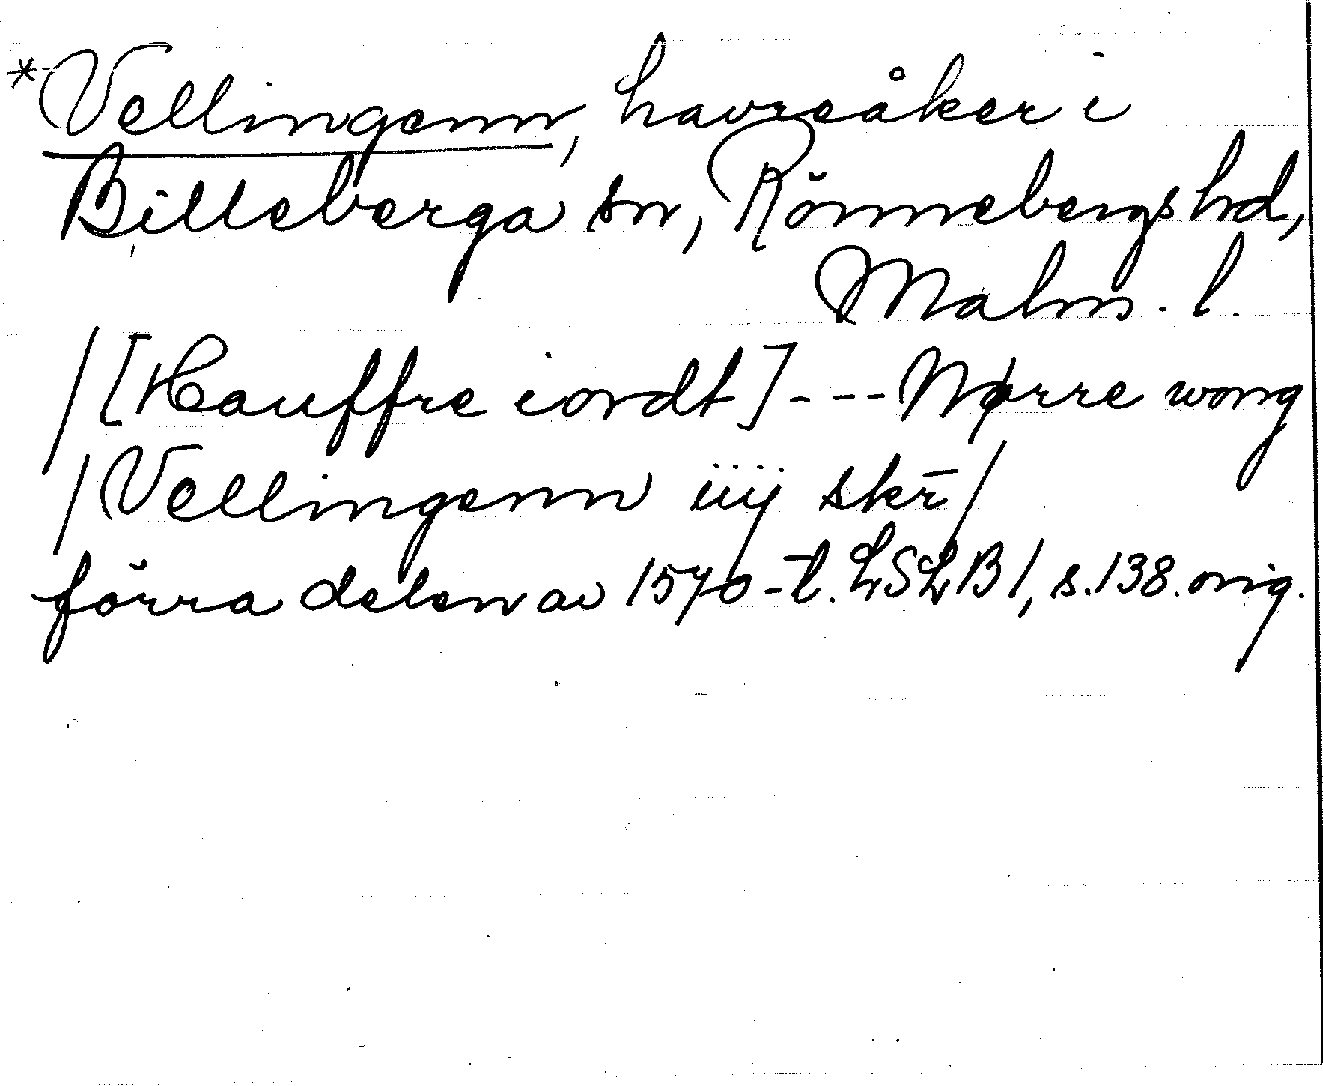 *Vellingenn, havreåker i
Billeberga sn, Rönnebergs hd,
Malm. l.
/[Hauffre iordt] --- Nørre wong
/Vellingenn iiij skr̄/
förra delen av 1570-t. LSLB 1, s. 138. orig.